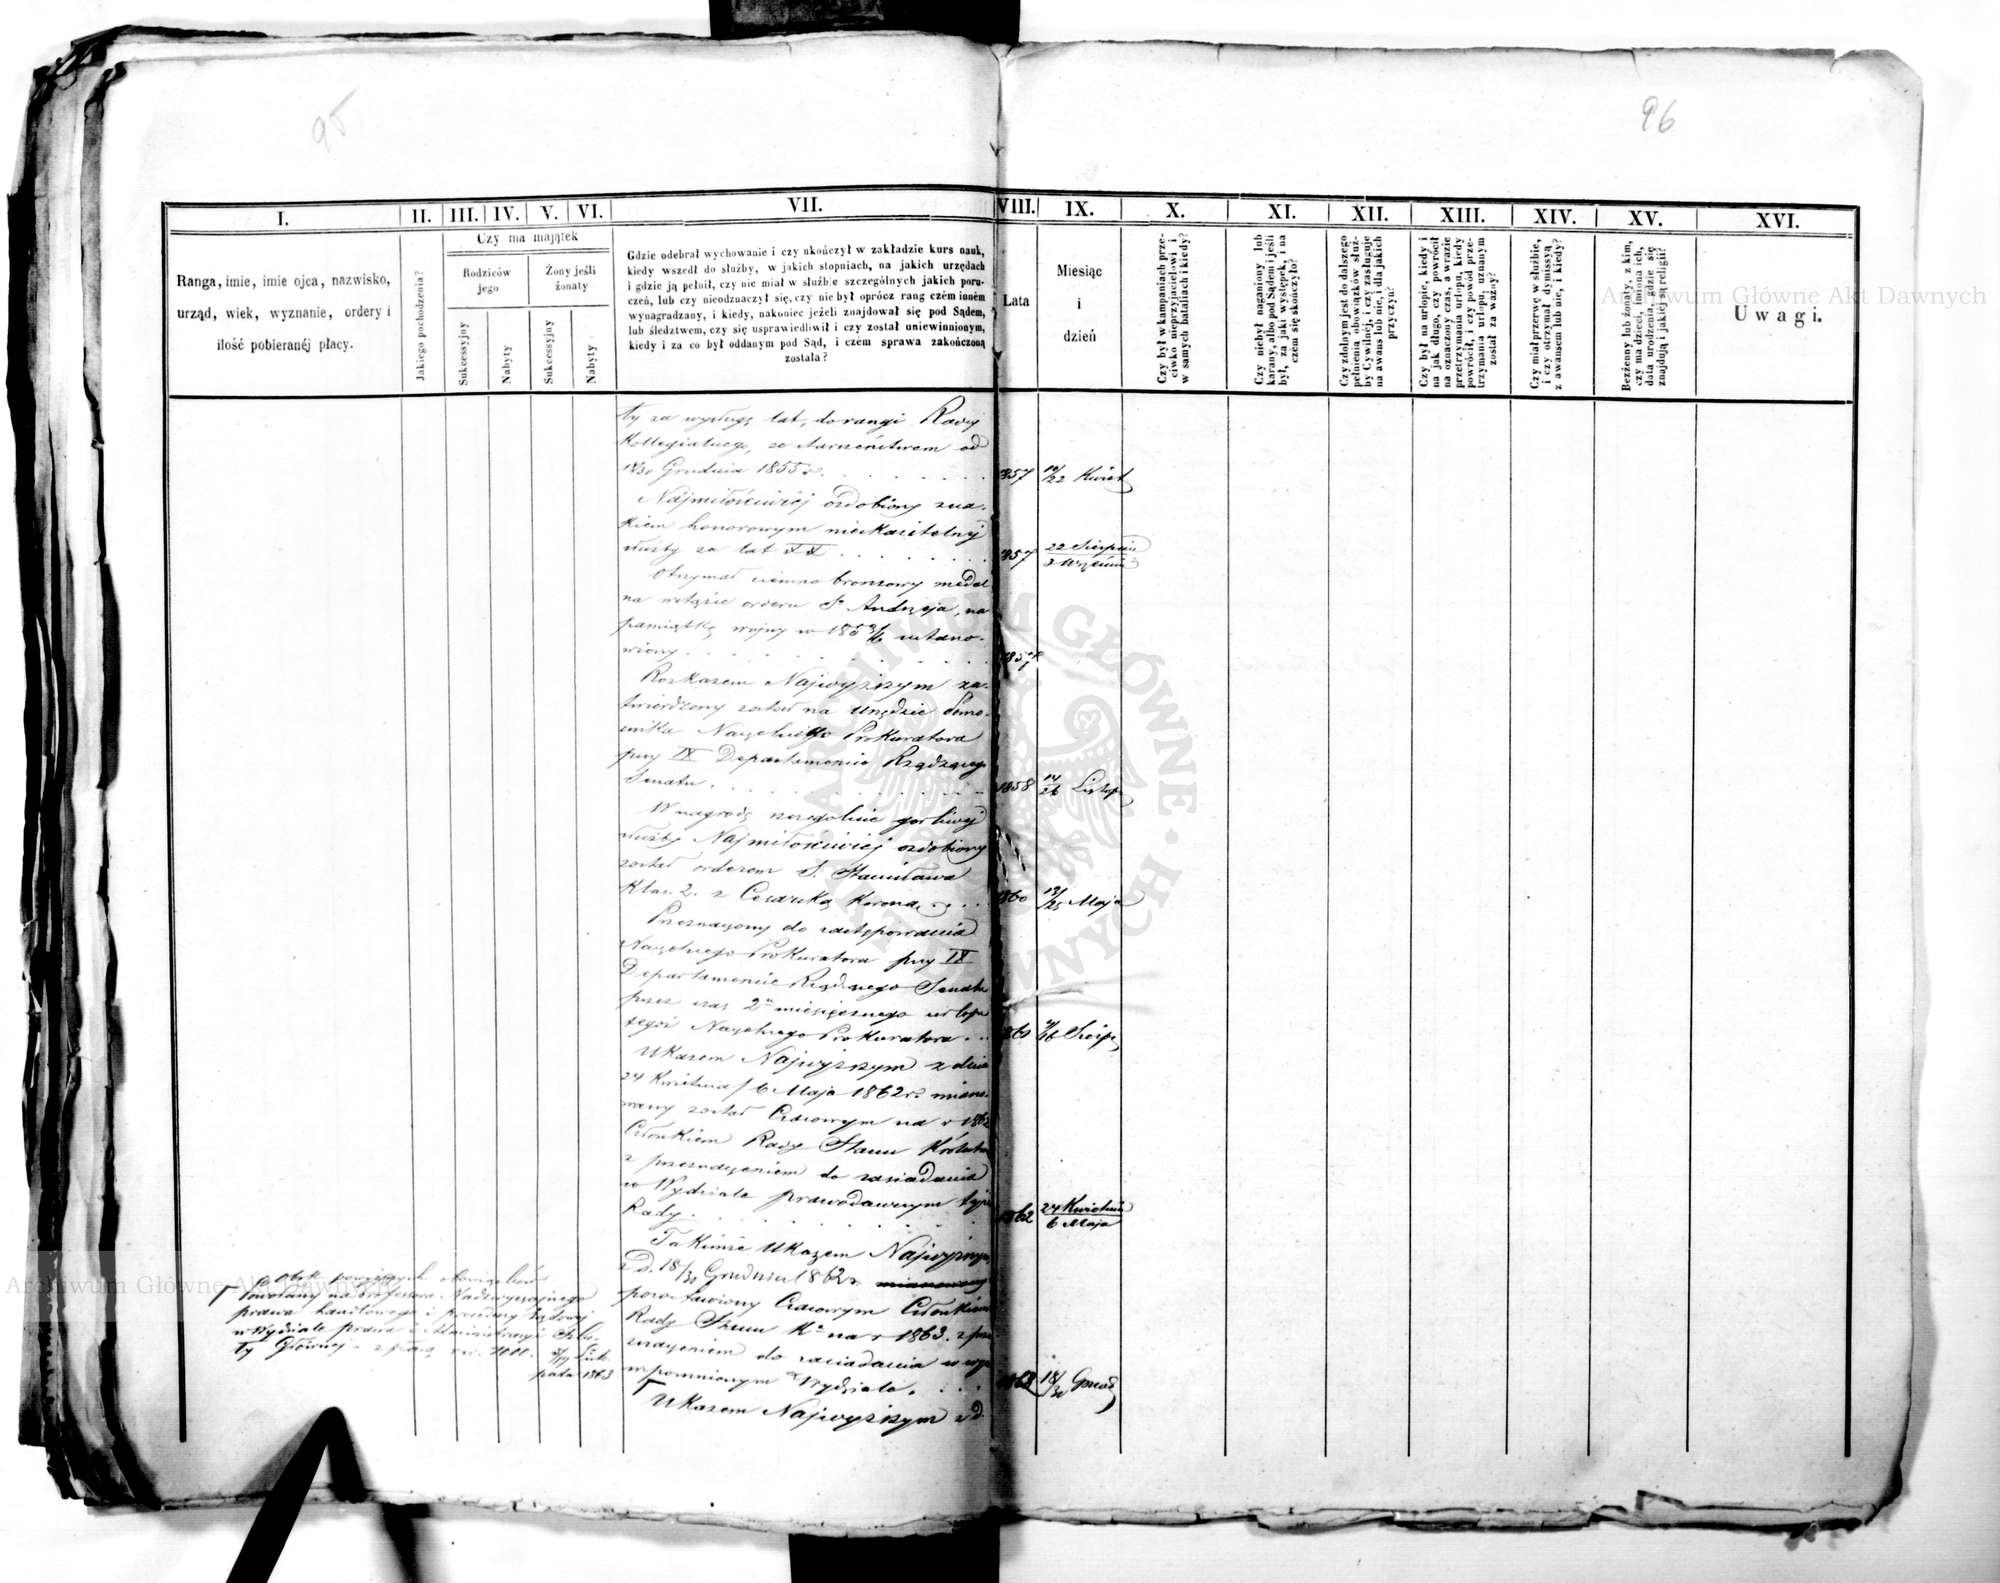 95
96
I.
II.
III.
IV.
V.
VI.
VII.
VIII.
IX.
X.
XI.
XII.
XIII.
XIV.
XV.
XVI.
Ranga, imie, imie ojca, nazwisko,
urząd, wiek, wyznanie, ordery i
ilość pobieranéj płacy.
Jakiego pochodzenia?
Czy ma majątek
Rodziców
jego
Żony jeśli
żonaty
Sukcessyjny
Nabyty
Sukcessyjny
Nabyty
Gdzie odebrał wychowanie i czy ukończył w zakładzie kurs nauk,
kiedy wszedł do służby, w jakich stopniach, na jakich urzędach
i gdzie ją pełnił, czy nie miał w służbie szczególnych jakich poru-
czeń, lub czy nieodznaczył się, czy nie był oprócz rang czém inném
wynagradzany, i kiedy, nakoniec jeżeli znajdował się pod Sądem,
lub śledztwem, czy się usprawiedliwił i czy został uniewinnionym,
kiedy i za co był oddanym pod Sąd, i czém sprawa zakończoną
została?
Lata
Miesiąc
i
dzień
Czy był w kampaniach prze-
ciwko nieprzyjacielowi i
w samych bataliach i kiedy?
Czy niebył naganiony lub
karany, albo pod Sądem i jeśli
był, za jaki występek, i na
czém się skończyło?
Czy zdolnym jest do dalszego
pełnienia obowiązków służ-
by Cywilnéj, i czy zasługuje
na awans lub nie, i dla jakich
przyczyn?
Czy był na urlopie, kiedy i
na jak długo, czy powrócił
na oznaczony czas, a w razie
przetrzymania urlopu, kiedy
powrócił, i czy powód prze-
trzymania urlopu, uznanym
został za ważny?
Czy miał przerwę w służbie,
i czy otrzymał dymissyą
z awansem lub nie, i kiedy?
Bezżenny lub żonaty, z kim,
czy ma dzieci, imiona ich,
data urodzenia, gdzie się
znajdują i jakiéj są religii?
Uwagi.
ty za wysługę lat, do rangi Radcy
Kollegialnego, ze starszeństwem od
18/30 Grudnia 1855 r. 1857 10/22 Kwiet
Najmiłościwiéj ozdobiony zna-
kiem honorowym nieskazitelnéj
służby za lat XX 1857 22 Sierpnia/3 Września
Otrzymał ciemno bronzowy medal
na wstążce orderu Sº Andrzeja, na
pamiątkę wojny w 1853/6 ustano-
wiony. 1857
Rozkazem Najwyższym za-
twierdzony został na Urzędzie Pomo-
cnika Naczelnego Prokuratora
przy IX Departamencie Rządzącego
Senatu. 1858 14/26 Listop
W nagrodę szczególnie gorliwéj
służby Najmiłościwiéj ozdobiony
został orderem S. Stanisława
Klas. 2. z Cesarską Koroną. 1860 13/25 Maja
Przeznaczony do zastępowania
Naczelnego Prokuratora przy IX
Departamencie Rządzącego Senatu
przez czas 2 miesięcznego urlopu
tegoż Naczelnego Prokuratora. 1860 4/16 Sierp
Ukazem Najwyższym z dnia
24 Kwietnia/6 Maja 1862 r. miano-
wany został Czasowym na r 1862
Członkiem Rady Stanu Królestwa
z przeznaczeniem do zasiadania
w Wydziale prawodawczym téjże
Rady. 1862 24 Kwietnia/6 Maja
Takimże Ukazem Najwyższym
z d. 18/30 Grudnia 1862 r. mianowany
pozostawiony Czasowym Członkiem
Rady Stanu Kª na r 1863. z prze
znaczeniem do zasiadania w wyż
wspomnionym Wydziale. 1862 18/30 Grud
Ukazem Najwyższym z d.
Obok powyższych obowiązków
powołany na Professora Nadzwyczajnego
prawa handlowego i procedury Sądowej
w Wydziale prawa i Administracji Szko-
ły Głównéj. z płacą rsr. 1000.
1863
Archiwum Główne Akt Dawnych
Archiwum Główne Akt Dawnych
ARCHIWUM GŁÓWNE AKT DAWNYCH